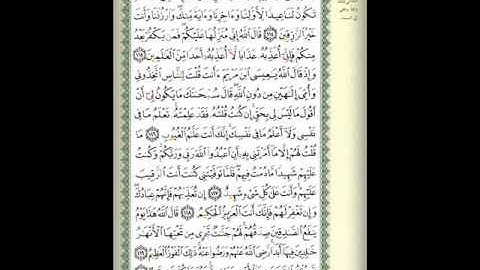 تَكُونُ لَنَا عِيدًا لِّأَوَّلِنَا وَءَاخِرِنَا وَءَايَةً مِّنكَ وَٱرْزُقْنَا وَأَنتَ
خَيْرُ ٱلرَّٰزِقِينَ ١١٤ قَالَ ٱللَّهُ إِنِّي مُنَزِّلُهَا عَلَيْكُمْ فَمَن يَكْفُرْ بَعْدُ
مِنكُمْ فَإِنِّيٓ أُعَذِّبُهُۥ عَذَابًا لَّآ أُعَذِّبُهُۥٓ أَحَدًا مِّنَ ٱلْعَٰلَمِينَ ١١٥
وَإِذْ قَالَ ٱللَّهُ يَٰعِيسَى ٱبْنَ مَرْيَمَ ءَأَنتَ قُلْتَ لِلنَّاسِ ٱتَّخِذُونِي
وَأُمِّيَ إِلَٰهَيْنِ مِن دُونِ ٱللَّهِ قَالَ سُبْحَٰنَكَ مَا يَكُونُ لِيٓ أَنْ
أَقُولَ مَا لَيْسَ لِي بِحَقٍّ إِن كُنتُ قُلْتُهُۥ فَقَدْ عَلِمْتَهُۥ تَعْلَمُ مَا فِي
نَفْسِي وَلَآ أَعْلَمُ مَا فِي نَفْسِكَ إِنَّكَ أَنتَ عَلَّٰمُ ٱلْغُيُوبِ ١١٦
مَا قُلْتُ لَهُمْ إِلَّا مَآ أَمَرْتَنِي بِهِۦٓ أَنِ ٱعْبُدُوا۟ ٱللَّهَ رَبِّي وَرَبَّكُمْ وَكُنتُ
عَلَيْهِمْ شَهِيدًا مَّا دُمْتُ فِيهِمْ فَلَمَّا تَوَفَّيْتَنِي كُنتَ أَنتَ ٱلرَّقِيبَ
عَلَيْهِمْ وَأَنتَ عَلَىٰ كُلِّ شَيْءٍ شَهِيدٌ ١١٧ إِن تُعَذِّبْهُمْ فَإِنَّهُمْ عِبَادُكَ
وَإِن تَغْفِرْ لَهُمْ فَإِنَّكَ أَنتَ ٱلْعَزِيزُ ٱلْحَكِيمُ ١١٨ قَالَ ٱللَّهُ هَٰذَا يَوْمُ
يَنفَعُ ٱلصَّٰدِقِينَ صِدْقُهُمْ لَهُمْ جَنَّٰتٌ تَجْرِي مِن تَحْتِهَا ٱلْأَنْهَٰرُ
خَٰلِدِينَ فِيهَآ أَبَدًا رَّضِيَ ٱللَّهُ عَنْهُمْ وَرَضُوا۟ عَنْهُ ذَٰلِكَ ٱلْفَوْزُ ٱلْعَظِيمُ ١١٩